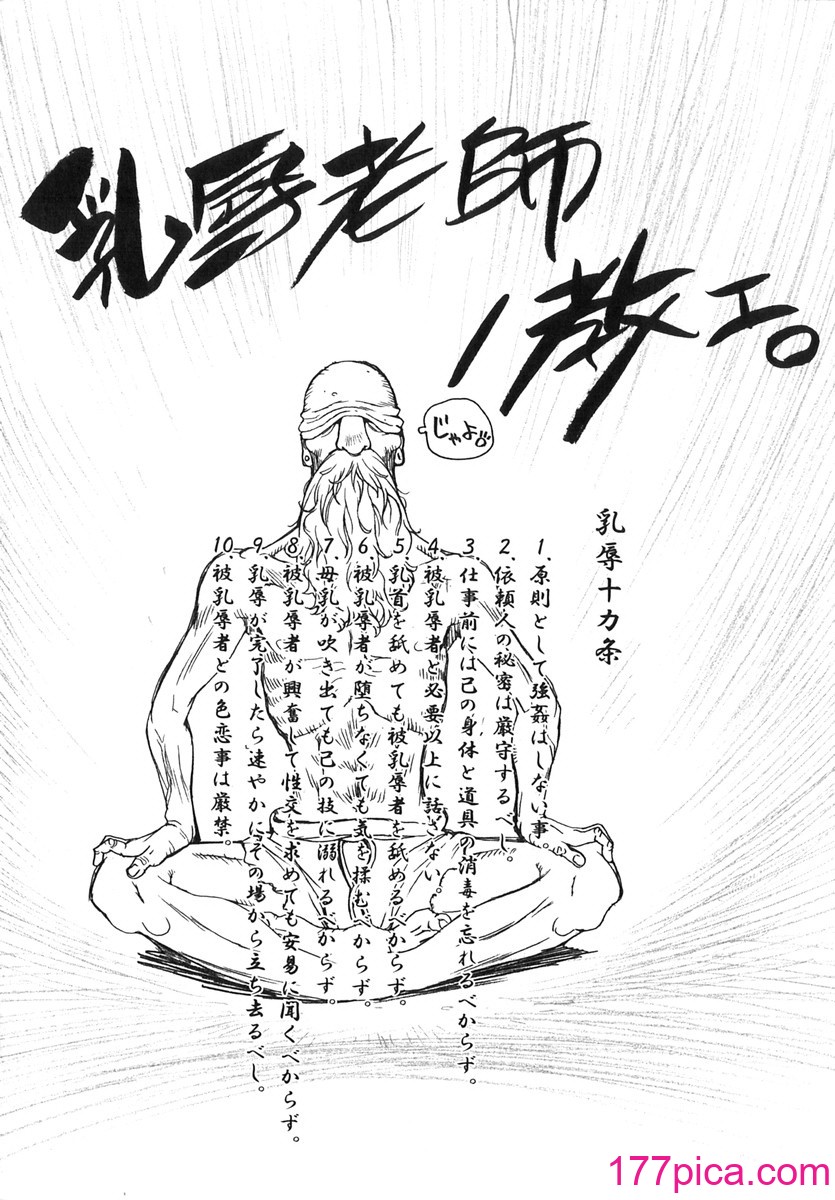 乳辱老師
ノ教エ。
じゃよ。
乳辱十カ条
1.原則として強姦はしない事。
2.依頼人の秘密は厳守するべし。
3.仕事前には己の身体と道具の消毒を忘れるべからず。
4.被乳辱者と必要以上に話さない。
5.乳首を舐めても被乳辱者を舐めるべからず。
6.被乳辱者が堕ちなくても気を揉むべからず。
7.母乳が吹き出ても己の技に溺れるべからず。
8.被乳辱者が興奮して性交を求めても安易に聞くべからず。
9.乳辱が完了したら速やかにその場から立ち去るべし。
10.被乳辱者との色恋事は厳禁。
177pica.com